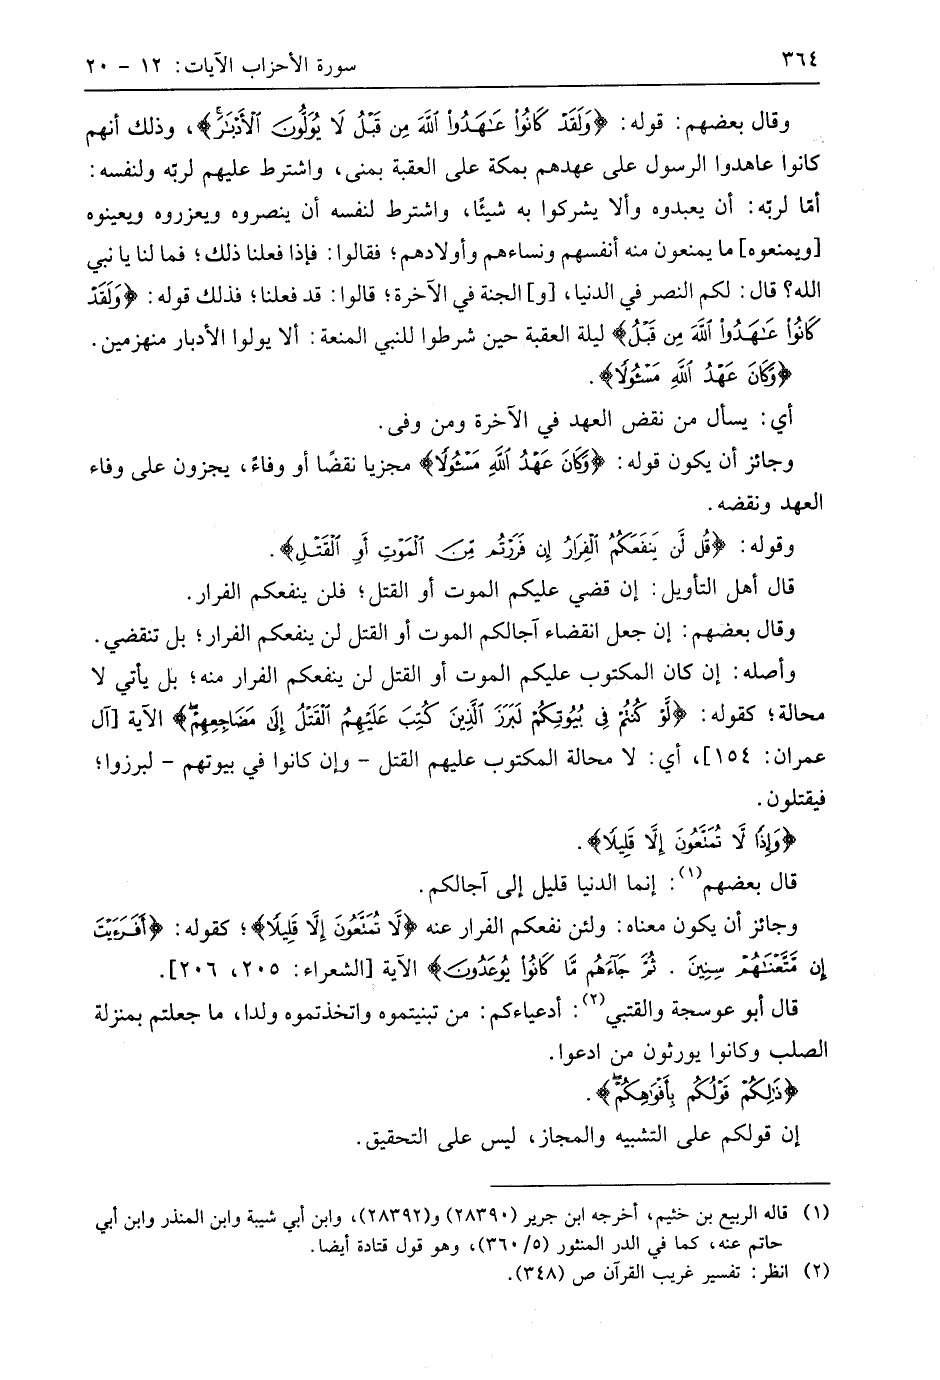 ٣٦٤
سورة الأحزاب الآيات: ١٢ - ٢٠
وقال بعضهم: قوله: ﴿وَلَقَدْ كَانُوا۟ عَـٰهَدُوا۟ ٱللَّهَ مِن قَبْلُ لَا يُوَلُّونَ ٱلْأَدْبَـٰرَۚ﴾، وذلك أنهم
كانوا عاهدوا الرسول على عهدهم بمكة على العقبة بمنى، واشترط عليهم لربّه ولنفسه:
أمّا لربّه: أن يعبدوه وألا يشركوا به شيئًا، واشترط لنفسه أن ينصروه ويعزروه ويعينوه
[ويمنعوه] ما يمنعون منه أنفسهم ونساءهم وأولادهم؛ فقالوا: فإذا فعلنا ذلك؛ فما لنا يا نبي
الله؟ قال: لكم النصر في الدنيا، [و] الجنة في الآخرة؛ قالوا: قد فعلنا؛ فذلك قوله: ﴿وَلَقَدْ
كَانُوا۟ عَـٰهَدُوا۟ ٱللَّهَ مِن قَبْلُ﴾ ليلة العقبة حين شرطوا للنبي المنعة: ألا يولوا الأدبار منهزمين.
﴿وَكَانَ عَهْدُ ٱللَّهِ مَسْـُٔولًا﴾.
أي: يسأل من نقض العهد في الآخرة ومن وفى.
وجائز أن يكون قوله: ﴿وَكَانَ عَهْدُ ٱللَّهِ مَسْـُٔولًا﴾ مجزيا نقضًا أو وفاءً، يجزون على وفاء
العهد ونقضه.
وقوله: ﴿قُل لَّن يَنفَعَكُمُ ٱلْفِرَارُ إِن فَرَرْتُم مِّنَ ٱلْمَوْتِ أَوِ ٱلْقَتْلِ﴾.
قال أهل التأويل: إن قضي عليكم الموت أو القتل؛ فلن ينفعكم الفرار.
وقال بعضهم: إن جعل انقضاء آجالكم الموت أو القتل لن ينفعكم الفرار؛ بل تنقضي.
وأصله: إن كان المكتوب عليكم الموت أو القتل لن ينفعكم الفرار منه؛ بل يأتي لا
محالة؛ كقوله: ﴿لَّوْ كُنتُمْ فِى بُيُوتِكُمْ لَبَرَزَ ٱلَّذِينَ كُتِبَ عَلَيْهِمُ ٱلْقَتْلُ إِلَىٰ مَضَاجِعِهِمْۖ﴾ الآية [آل
عمران: ١٥٤]، أي: لا محالة المكتوب عليهم القتل - وإن كانوا في بيوتهم - لبرزوا؛
فيقتلون.
﴿وَإِذًا لَّا تُمَتَّعُونَ إِلَّا قَلِيلًا﴾.
قال بعضهم(١): إنما الدنيا قليل إلى آجالكم.
وجائز أن يكون معناه: ولئن نفعكم الفرار عنه ﴿لَّا تُمَتَّعُونَ إِلَّا قَلِيلًا﴾؛ كقوله: ﴿أَفَرَءَيْتَ
إِن مَّتَّعْنَـٰهُمْ سِنِينَ . ثُمَّ جَآءَهُم مَّا كَانُوا۟ يُوعَدُونَ﴾ الآية [الشعراء: ٢٠٥، ٢٠٦].
قال أبو عوسجة والقتبي(٢): أدعياءكم: من تبنيتموه واتخذتموه ولدا، ما جعلتم بمنزلة
الصلب وكانوا يورثون من ادعوا.
﴿ذَٰلِكُمْ قَوْلُكُم بِأَفْوَٰهِكُمْۖ﴾.
إن قولكم على التشبيه والمجاز، ليس على التحقيق.
(١) قاله الربيع بن خثيم، أخرجه ابن جرير (٢٨٣٩٠) و(٢٨٣٩٢)، وابن أبي شيبة وابن المنذر وابن أبي
حاتم عنه، كما في الدر المنثور (٥/ ٣٦٠)، وهو قول قتادة أيضا.
(٢) انظر: تفسير غريب القرآن ص (٣٤٨).